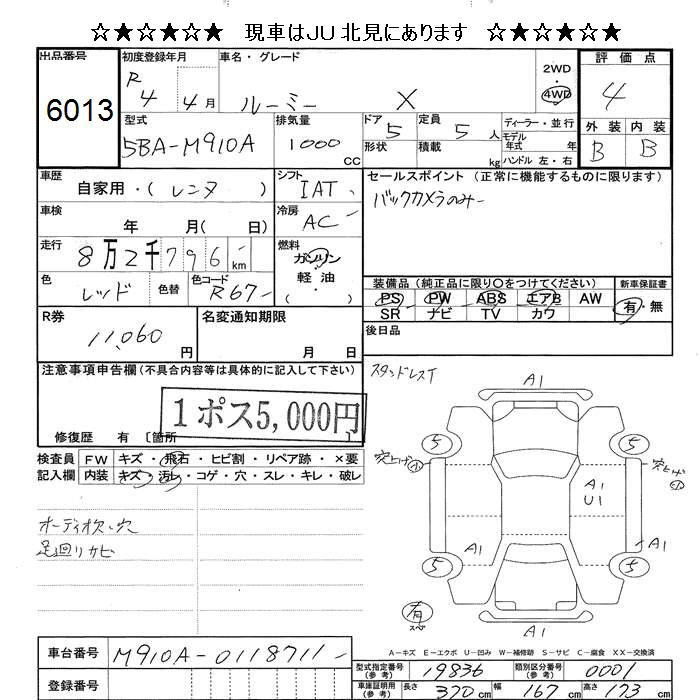 ☆★☆★☆★ 現車はJU北見にあります ☆★☆★☆★
出品番号
6013
初度登録年月
R 4 4月
車名・グレード
ルーミー X
2WD
4WD
評価点
4
型式
5BA-M910A
排気量
1000 CC
ドア 5
形状
定員 5人
積載 kg
ディーラー・並行
モデル年式 年式
ハンドル 左・右
外装 内装
B B
車歴
自家用・(レンタ )
シフト
IAT
セールスポイント(正常に機能するものに限ります)
バックカメラのみ-
車検
年 月( 日)
冷房
AC-
走行
8万2千796km
燃料
ガソリン・軽油
( )
色
レッド
色替
色コード
R67-
装備品(純正品に限り○をつけてください)
PS PW ABS エアB AW
SR ナビ TV カワ
新車保証書
有・無
R券
11,060円
名変通知期限
月 日
後日品
注意事項申告欄(不具合内容等は具体的に記入して下さい)
1ポス5,000円
修復歴 有 〔箇所 〕
検査員記入欄
FW キズ・飛石・ヒビ割・リペア跡・×要
内装 キズ・汚レ・コゲ・穴・スレ・キレ・破レ
オーディオ欠・穴
足廻リサビ
スタッドレスT
A1
5 5
穴上げ小
穴上げ小
A1
U1
A1 A1
5 5
有
スペ
A1
A-キズ E-エクボ U-凹み W-補修跡 S-サビ C-腐食 XX-交換済
車台番号
M910A-0118711-
登録番号
型式指定番号(参考)
19836
類別区分番号(参考)
0001
車庫証明用(参考)
長さ 370cm 幅 167cm 高さ 173cm